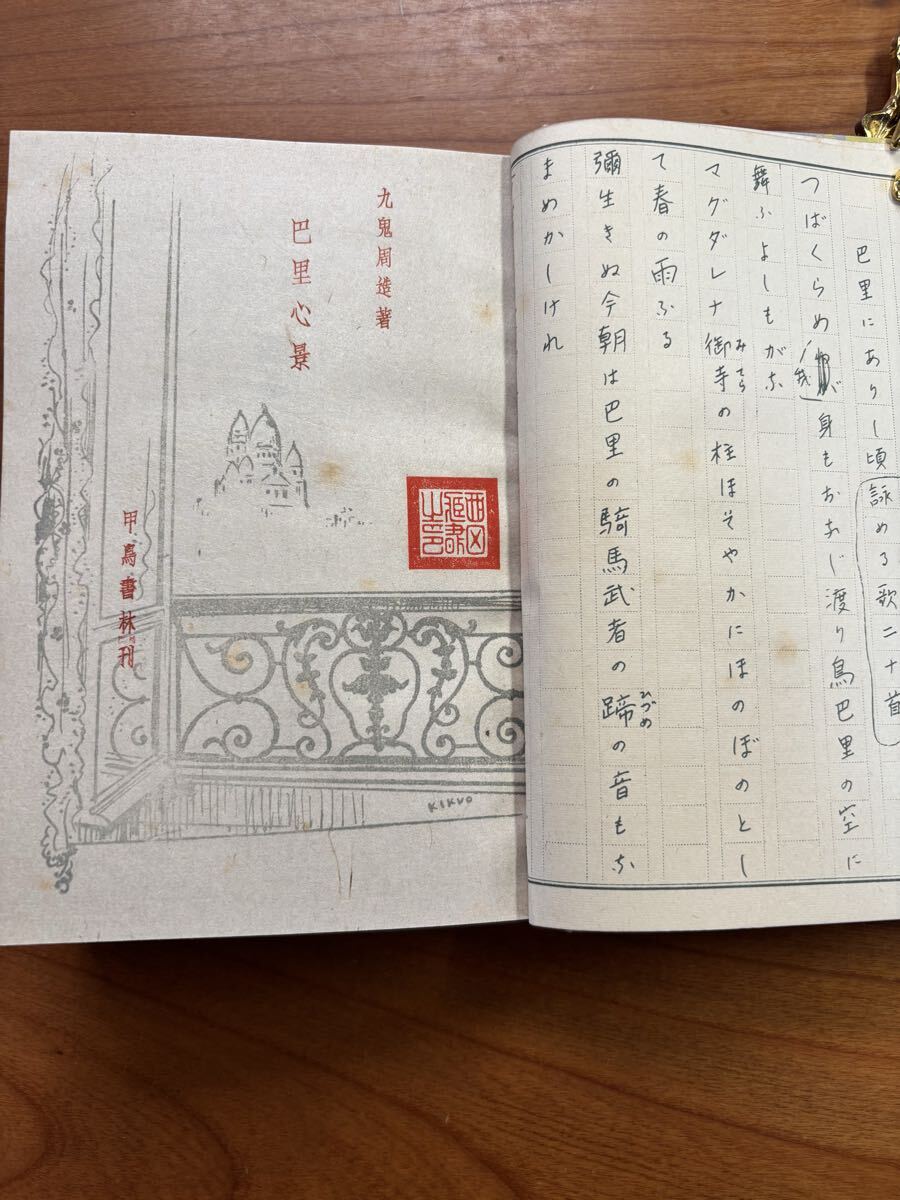 巴里にありし頃詠める歌二十首
つばくらめ我が身もおなじ渡り鳥巴里の空に
舞ふよしもがな
みてら
マグダレナ御寺の柱ほそやかにほのぼのとし
て春の雨ふる
ひづめ
彌生きぬ今朝は巴里の騎馬武者の蹄の音もな
まめかしけれ
九鬼周造著
巴里心景
甲鳥書林刊
KIKUO